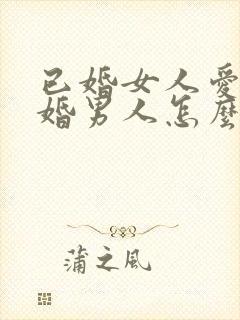 已婚女人愛
婚男人怎麼
蒲之風